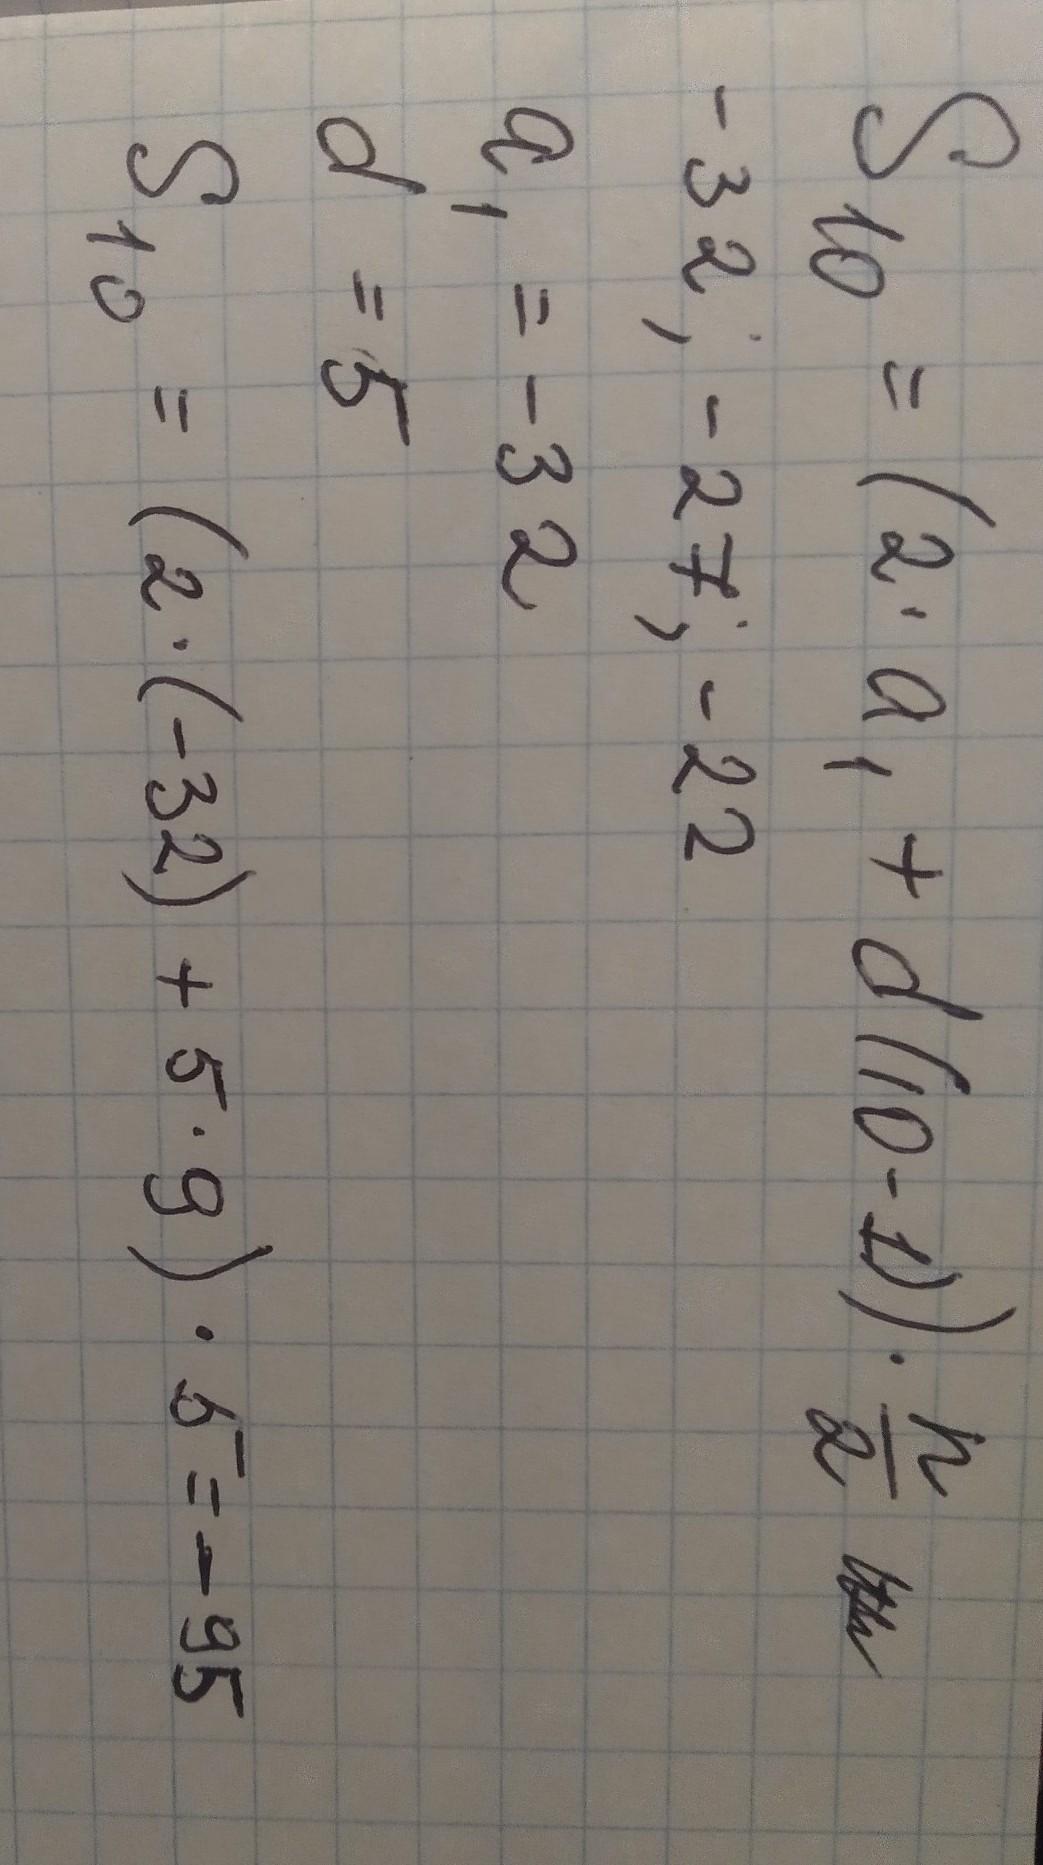 S₁₀ = (2·a₁ + d(10-1))·n/2
-32; -27; -22
a₁ = -32
d = 5
S₁₀ = (2·(-32) + 5·9)·5 = -95